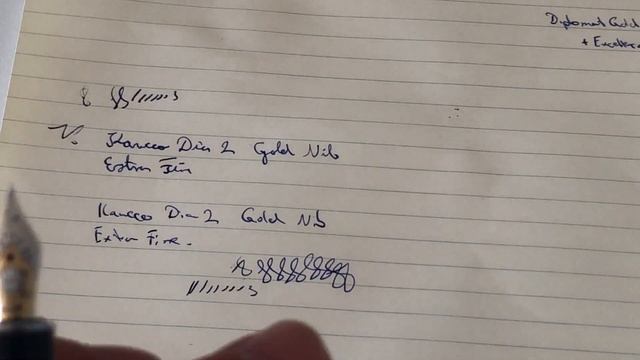 Diplomat Gold
+ Excellence
Kaweco Dia 2 Gold Nib
Extra Fine
Kaweco Dia 2 Gold Nib
Extra Fine.